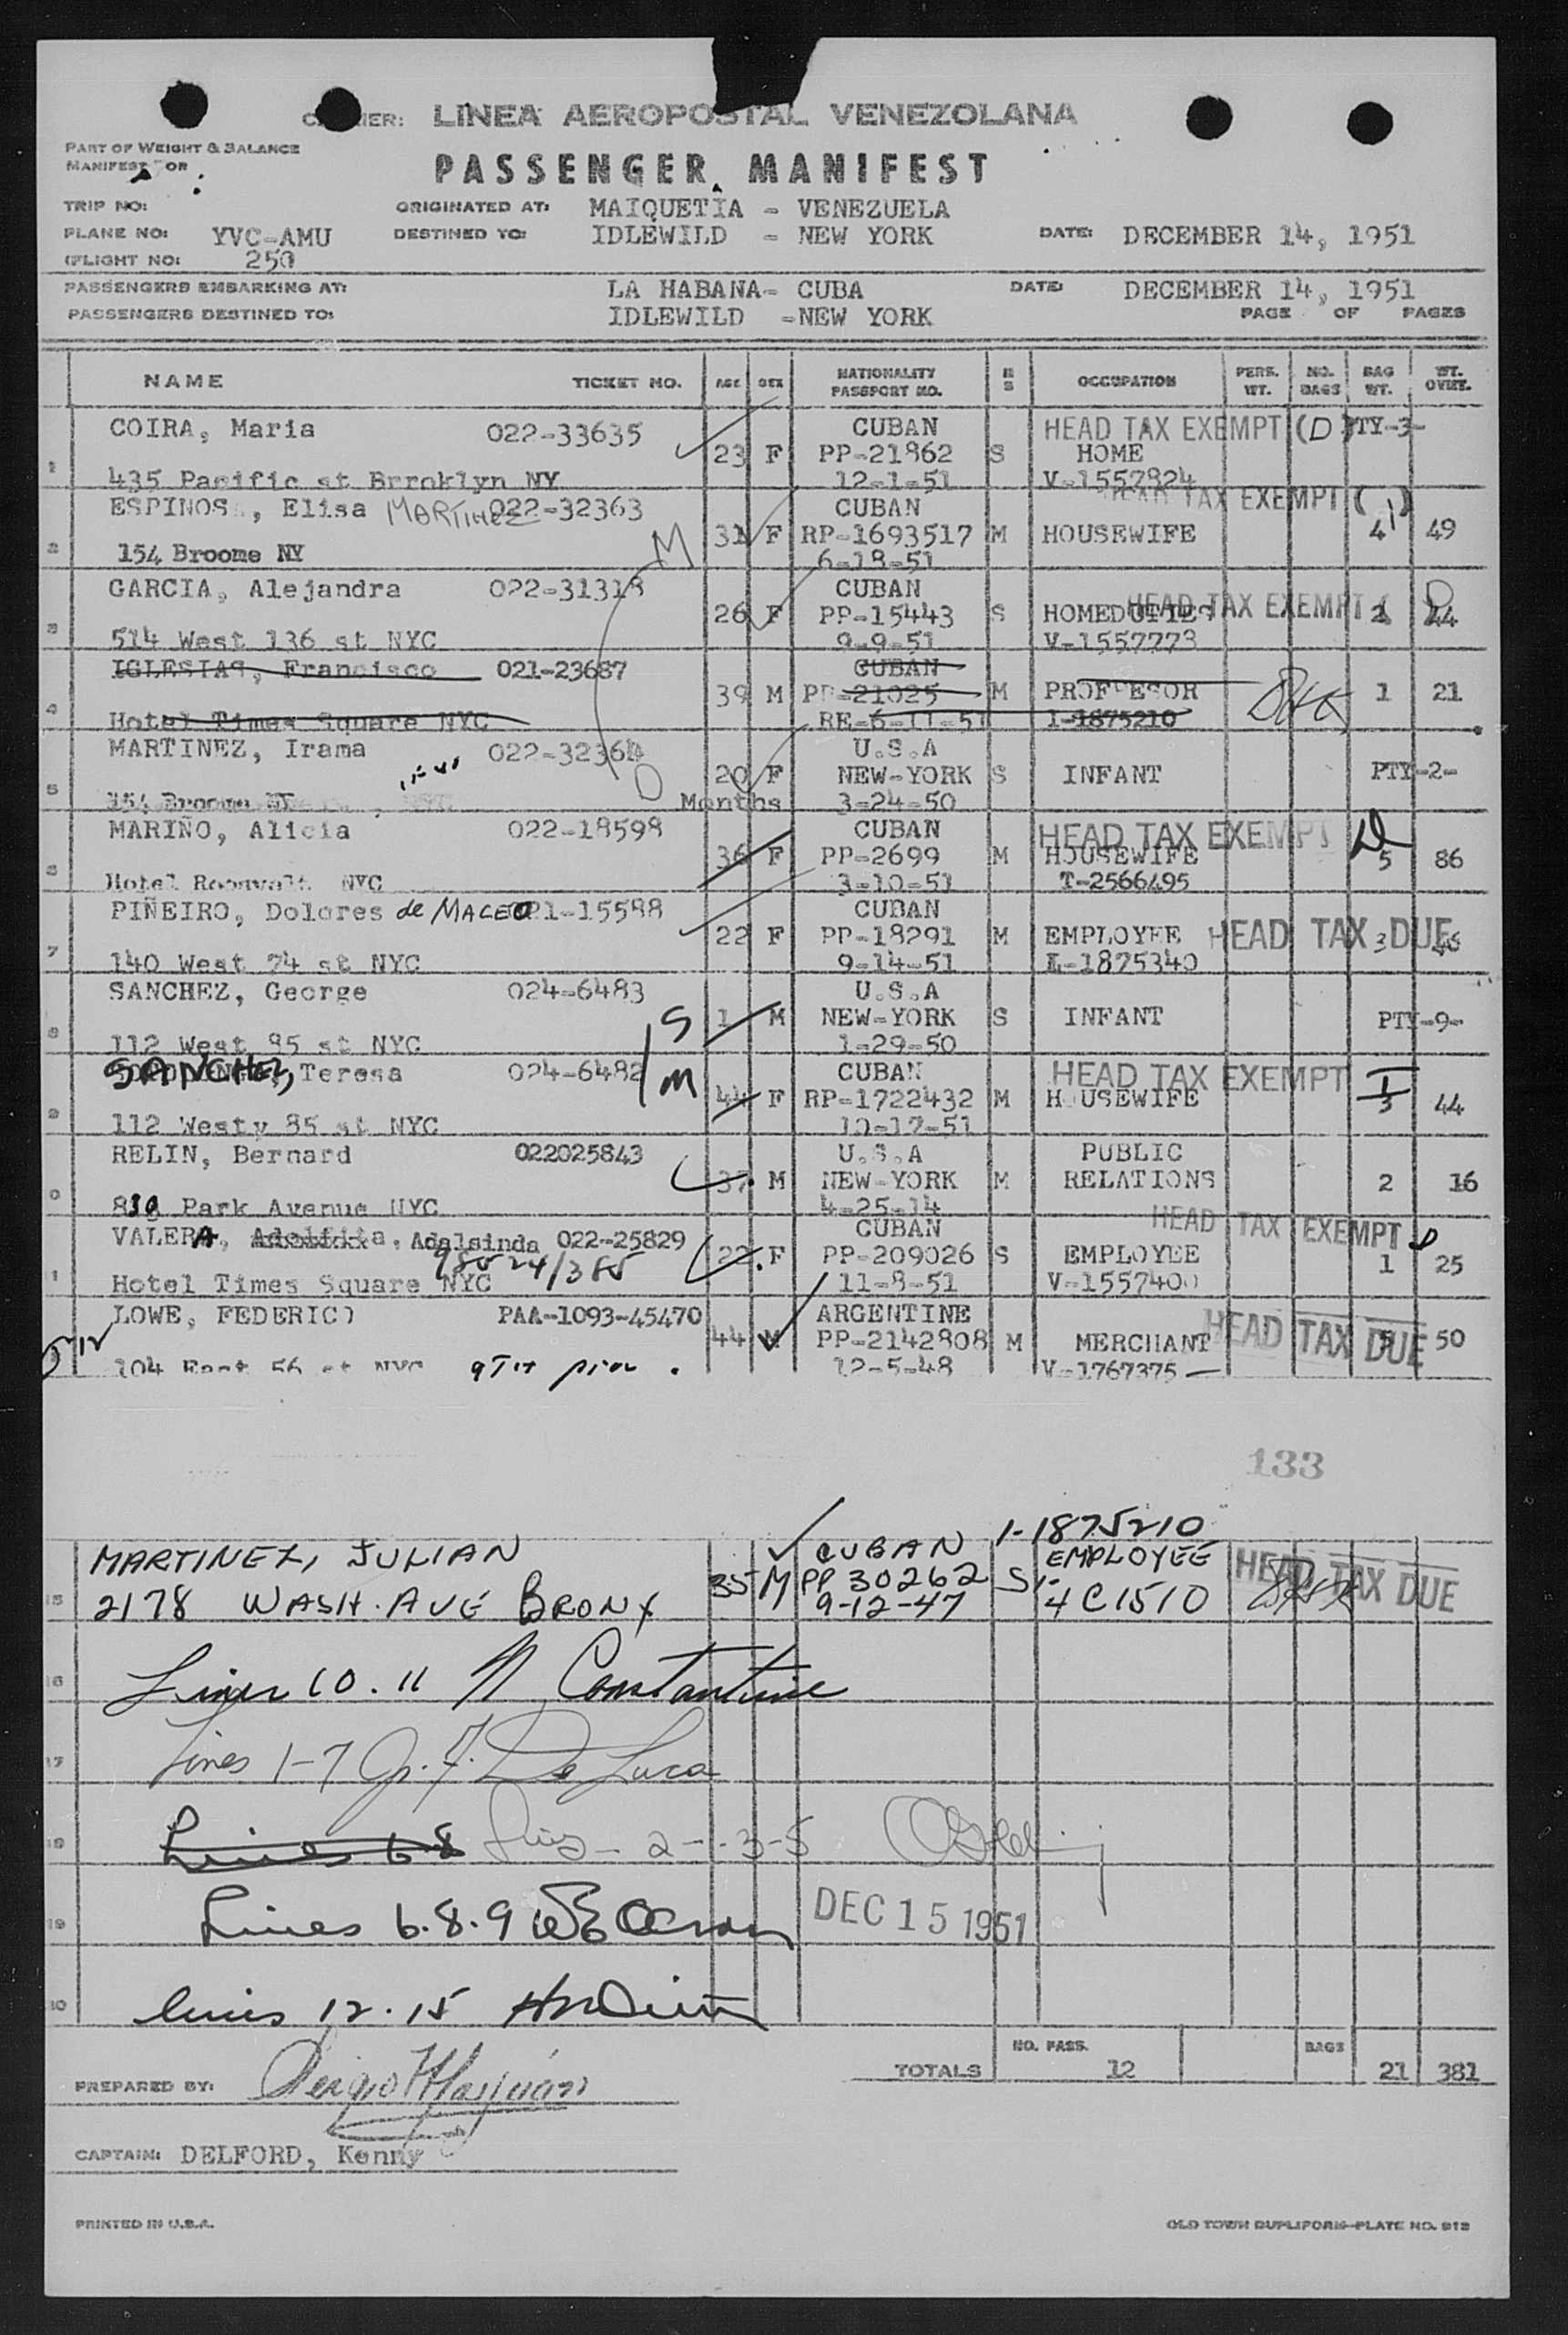 LINEA AEROPOSTAL VENEZOLANA
PART OF WEIGHT & BALANCE
MANIFEST FOR
PASSENGER MANIFEST
TRIP NO:
ORIGINATED AT: MAIQUETIA - VENEZUELA
PLANE NO: YVC-AMU
DESTINED TO: IDLEWILD - NEW YORK
DATE: DECEMBER 14, 1951
FLIGHT NO: 250
PASSENGERS EMBARKING AT: LA HABANA- CUBA
DATE: DECEMBER 14, 1951
PASSENGERS DESTINED TO: IDLEWILD -NEW YORK
PAGE OF PAGES
NAME TICKET NO. AGE SEX NATIONALITY PASSPORT NO. M S OCCUPATION PERS. WT. NO. BAGS BAG WT. WT. OVWT.
COIRA, Maria 022-33635 CUBAN HEAD TAX EXEMPT (D) PTY-3-
1 23 F PP-21862 S HOME
435 Pacific st Brroklyn NY 12-1-51 V-1557824
ESPINOS, Elisa MARTINEZ 022-32363 CUBAN HEAD TAX EXEMPT
2 154 Broome NY M 31 F RP-1693517 M HOUSEWIFE 4 49
6-18-51
GARCIA, Alejandra 022-31318 CUBAN
3 26 F PP-15443 S HOMEDUTIES HEAD TAX EXEMPT 2 44
514 West 136 st NYC 9-9-51 V-1557773
IGLESIAS, Francisco 021-23687 CUBAN
4 39 M PP-21025 M PROFFESOR 1 21
Hotel Times Square NYC RE-6-11-51 1-1875210
MARTINEZ, Irama 022-32364 U.S.A
5 20 F NEW-YORK S INFANT PTY-2-
154 Broome NY Months 3-24-50
MARIÑO, Alicia 022-18598 CUBAN HEAD TAX EXEMPT D
6 36 F PP-2699 M HOUSEWIFE 5 86
Hotel Roosvalt NYC 3-10-51 T-2566495
PIÑEIRO, Dolores de MACEO 021-15588 CUBAN
7 22 F PP-18291 M EMPLOYEE HEAD TAX DUE 3 46
140 West 74 st NYC 9-14-51 I-1875340
SANCHEZ, George 024-6483 U.S.A
8 S 1 M NEW-YORK S INFANT PTY-9-
112 West 85 st NYC 1-29-50
SANCHEZ, Teresa 024-6482 CUBAN HEAD TAX EXEMPT I
9 M 44 F RP-1722432 M HOUSEWIFE 3 44
112 Westy 85 st NYC 10-17-51
RELIN, Bernard 022025843 U.S.A PUBLIC
0 37 M NEW-YORK M RELATIONS 2 16
Park Avenue NYC 4-25-14
VALERA, Adalsinda 022-25829 CUBAN HEAD TAX EXEMPT
1 22 F PP-209026 S EMPLOYEE 1 25
Hotel Times Square NYC 11-8-51 V-1557400
LOWE, FEDERICO PAA-1093-45470 ARGENTINE
44 M PP-2142808 M MERCHANT HEAD TAX DUE 5 50
104 East 56 st NYC 12-5-48 V-1767375
133
1-1875210
MARTINEZ, JULIAN CUBAN EMPLOYEE HEAD TAX DUE
15 2178 WASH. AVE BRONX 35 M PP 30262 S 4C1510
9-12-47
16 Lines 10. 11 N Constantine
17 Lines 1-7 G. F. De Luca
18 Lines 6-8 Lines - 2 - 3 - 5
19 Lines 6.8.9 DEC 15 1951
20 lines 12.15
TOTALS NO. PASS. 12 BAGS 21 381
PREPARED BY:
CAPTAIN: DELFORD, Kenny
PRINTED IN U.S.A.
OLD TOWN DUPLIFORM-PLATE NO. 912